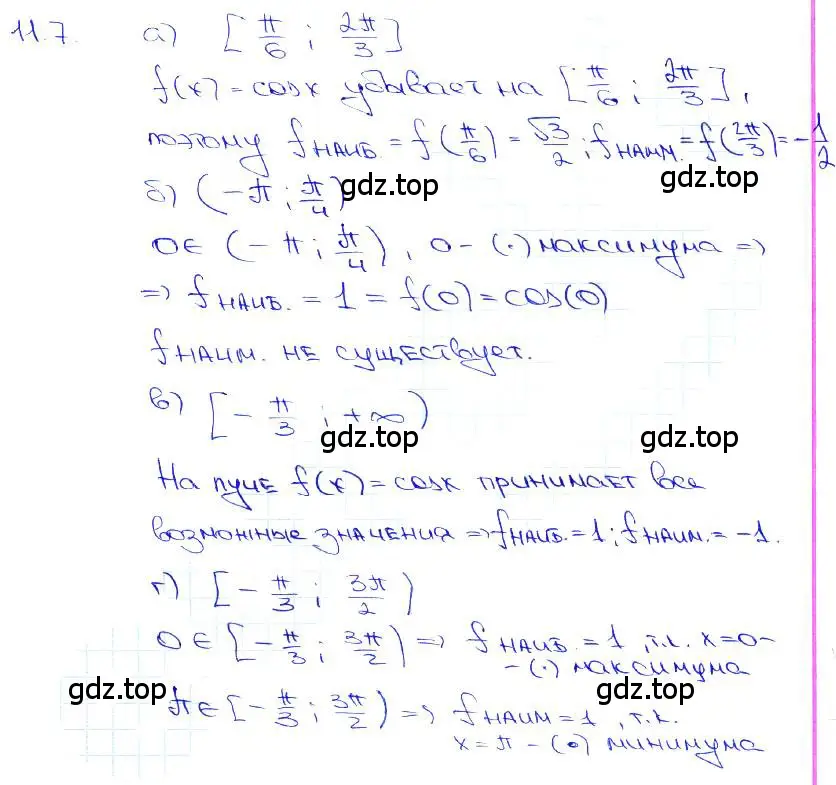 11.7. а) [π/6 ; 2π/3]
f(x) = cosx убывает на [π/6 ; 2π/3],
поэтому fНАИБ. = f(π/6) = √3/2 ; fНАИМ. = f(2π/3) = -1/2
gdz.top gdz.top
б) (-π ; π/4)
0 ∈ (-π ; π/4), 0 - (·) максимума =>
=> fНАИБ. = 1 = f(0) = cos(0)
fНАИМ. не существует.
в) [-π/3 ; +∞)
gdz.top gdz.top
На луче f(x) = cosx принимает все
возможные значения => fНАИБ. = 1 ; fНАИМ. = -1.
г) [-π/3 ; 3π/2)
0 ∈ [-π/3 ; 3π/2) => fНАИБ. = 1, т.к. x=0 -
- (·) максимума
gdz.top gdz.top
π ∈ [-π/3 ; 3π/2) => fНАИМ = 1, т.к.
x = π - (·) минимума